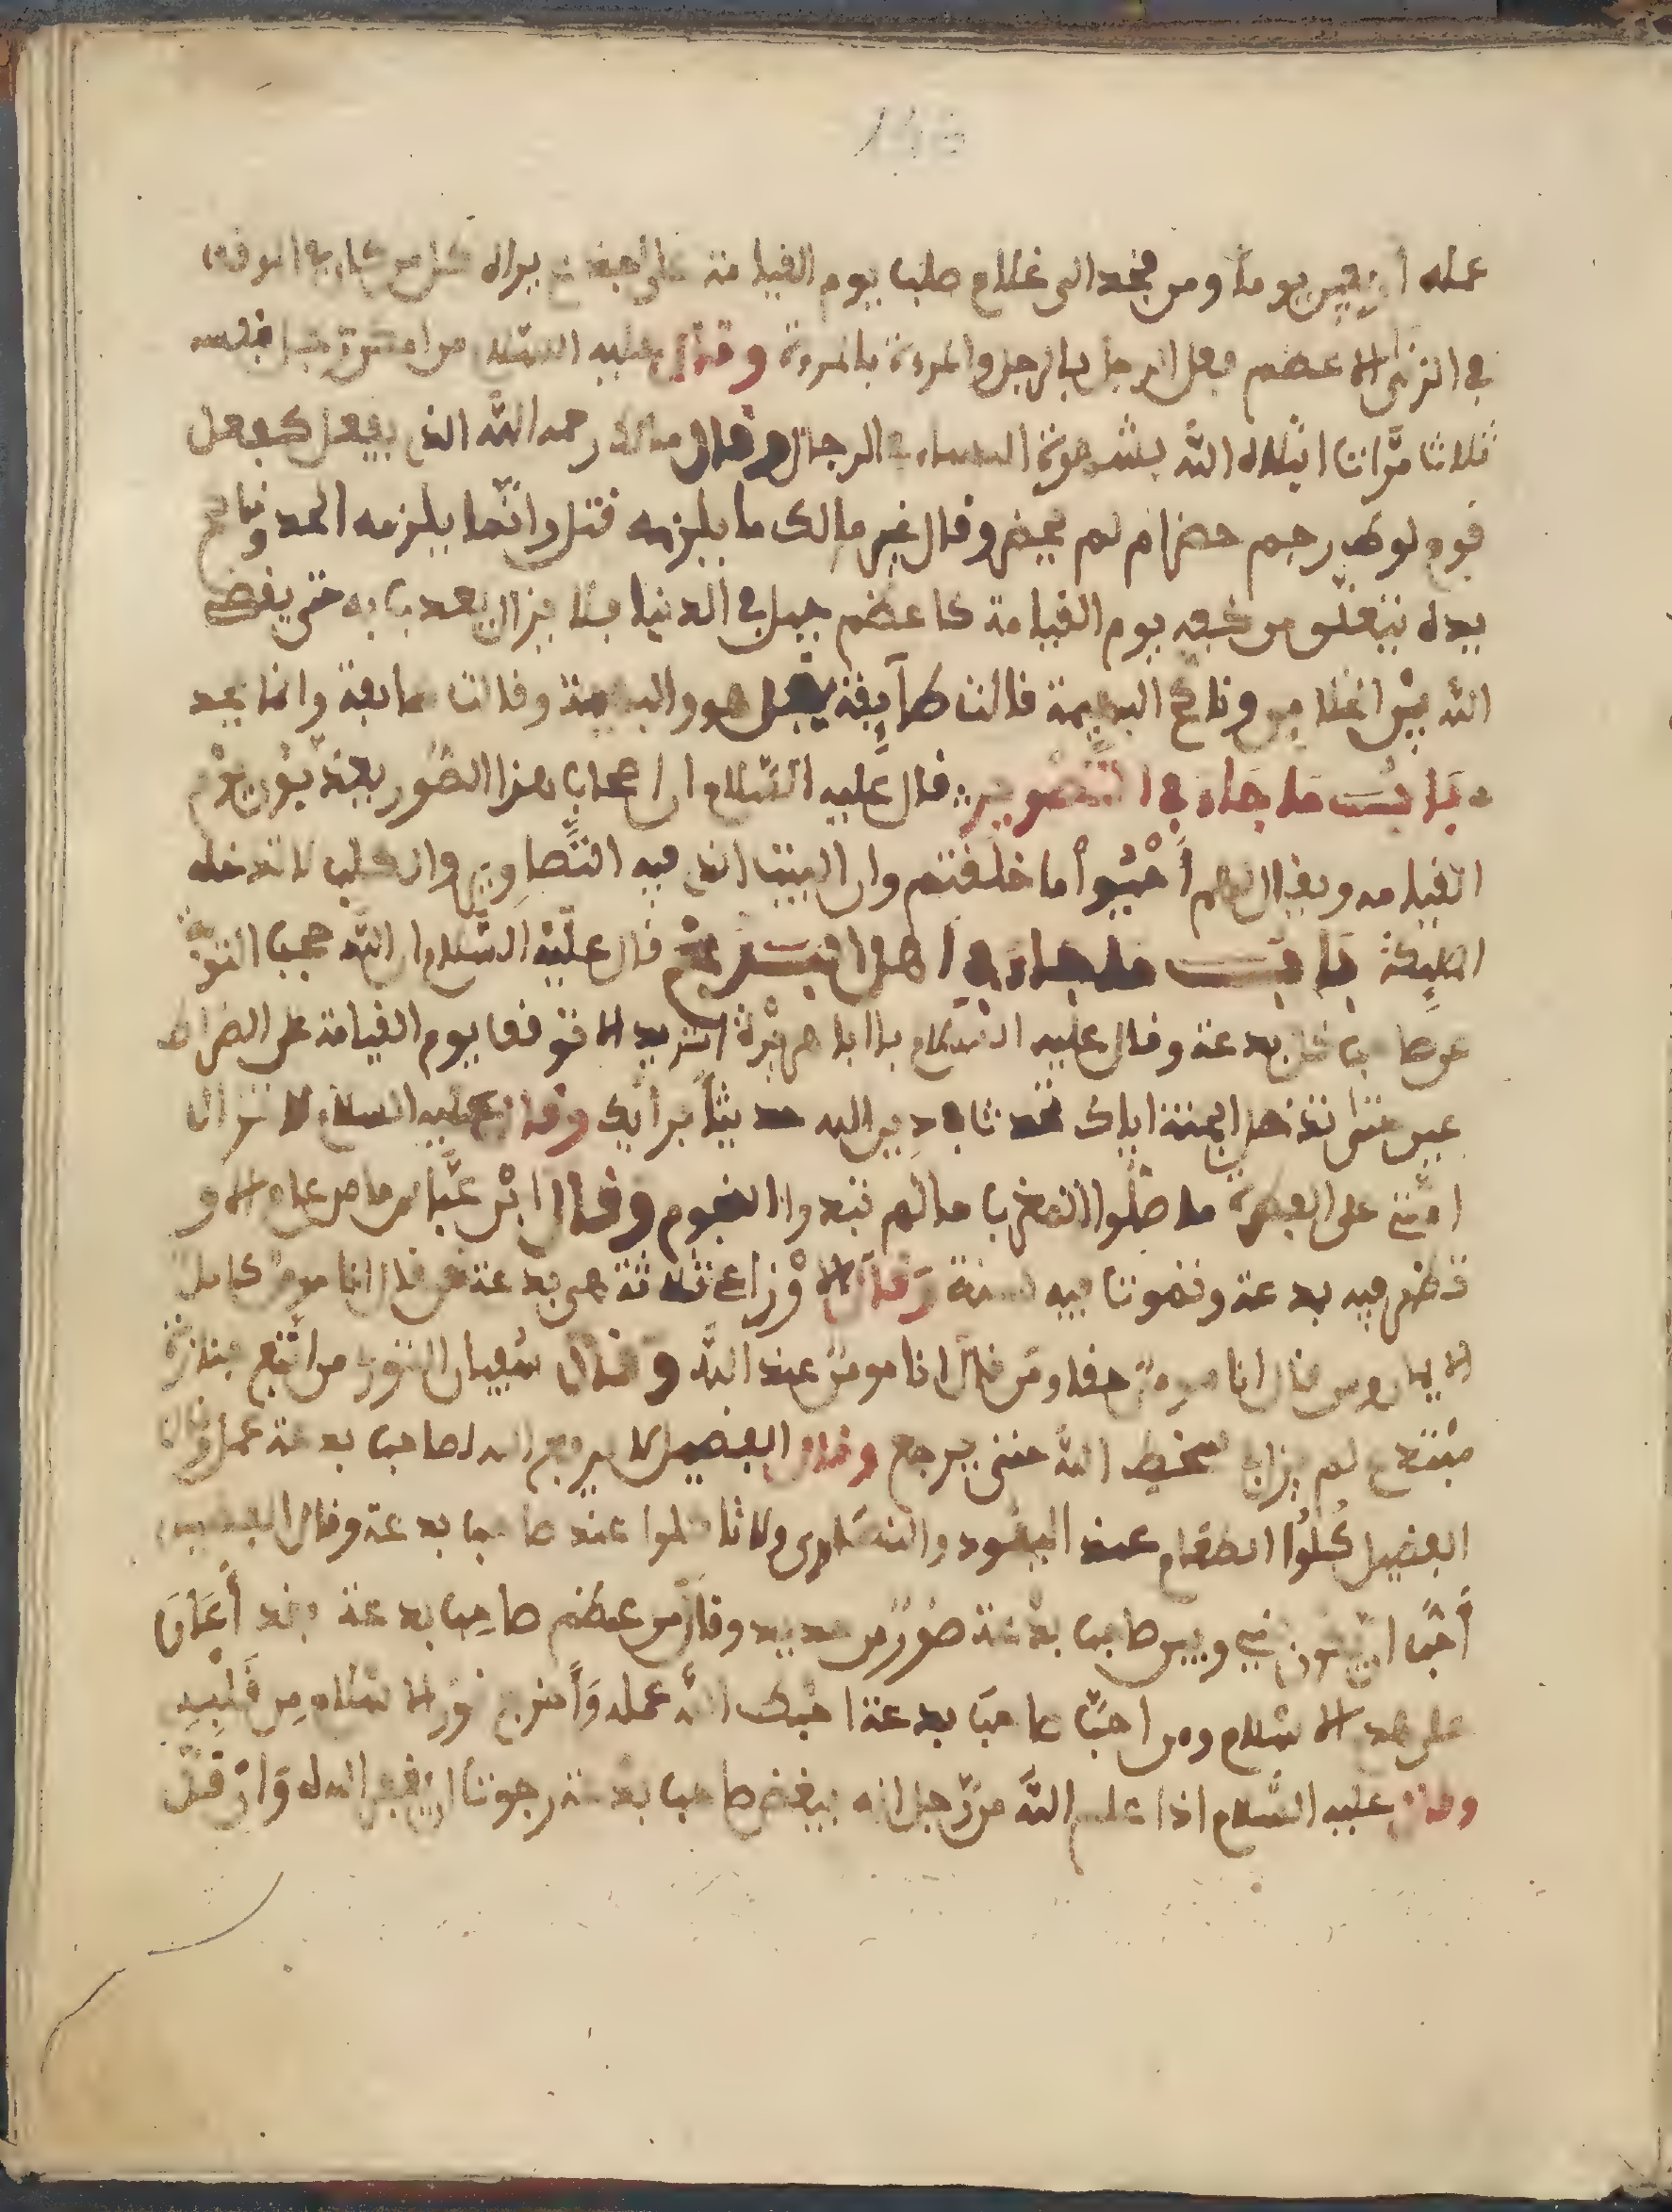 عمله أربعين يوما ومن فخد الى غلام صلب يوم القيامة على جهنم يراه كل من كان في الموقف
في الزنى الاعظم فعل الرجل بالرجل والمروة بالمروة وقال عليه السلم من امكن رجلا نفسه
ثلاث مرات ابتلاه الله بشهوة النساء في الرجال وقال مالك رحمه الله الذي يفعل كفعل
قوم لوط رجم حضر ام لم يحضر وقال غير مالك ما يلزمه قتل وانما يلزمه الحد وناكح
يده يتعلق من كفه يوم القيامة كاعظم جبل في الدنيا فلا يزال يعذب به حتى يقضي
الله بين الخلايق وناكح البهيمة قالت طآيفة يقتل هو والبهيمة وقالت طايفة وانما يحد
باب ما جاء في التصوير قال عليه السلام ان اصحاب هذا الصور يعذبون يوم
القيامه ويقال لهم أحيوا ما خلقتم وان البيت الذي فيه التصاوير والكلب لا تدخله
المليكة باب ما جاء في اهل البدع قال عليه السلام ان الله حجب التوبة
عن صاحب كل بدعة وقال عليه السلام يا ابا هريرة اتريد الا توقف يوم القيامة على الصراط
عين حتى تدخل الجنة اياك تحدث في دين الله حديثا برأيك وقال عليه السلام لا تزال
امتي على الفطرة ما صلوا المغرب ما لم تبدوا النجوم وقال ابن عباس ما من عام الا و
تظهر فيه بدعة وتموت فيه سنة وقال الاوزاعي ثلاثة هي بدعة من قال انا مومن كامل
الايمان ومن قال انا مومن حقا ومن قال انا مومن عند الله وقال سفيان الثوري من اتبع جنازة
مبتدع لم يزل في سخط الله حتى يرجع وقال الفضيل لا يرفع الله لصاحب بدعة عملا وقال
الفضيل كلوا الطعام عند اليهود والنصارى ولا تاكلوا عند صاحب بدعة وقال الفضيل
أحب ان يكون بيني وبين صاحب بدعة صور من حديد وقال من عظم صاحب بدعة فقد أعان
على هدم الاسلام ومن احب صاحب بدعة احبط الله عمله وأخرج نور الاسلام من قلبه
وقال عليه السلام اذا علم الله من رجل انه يبغض صاحب بدعة رجوت ان يغفر الله له وان قل